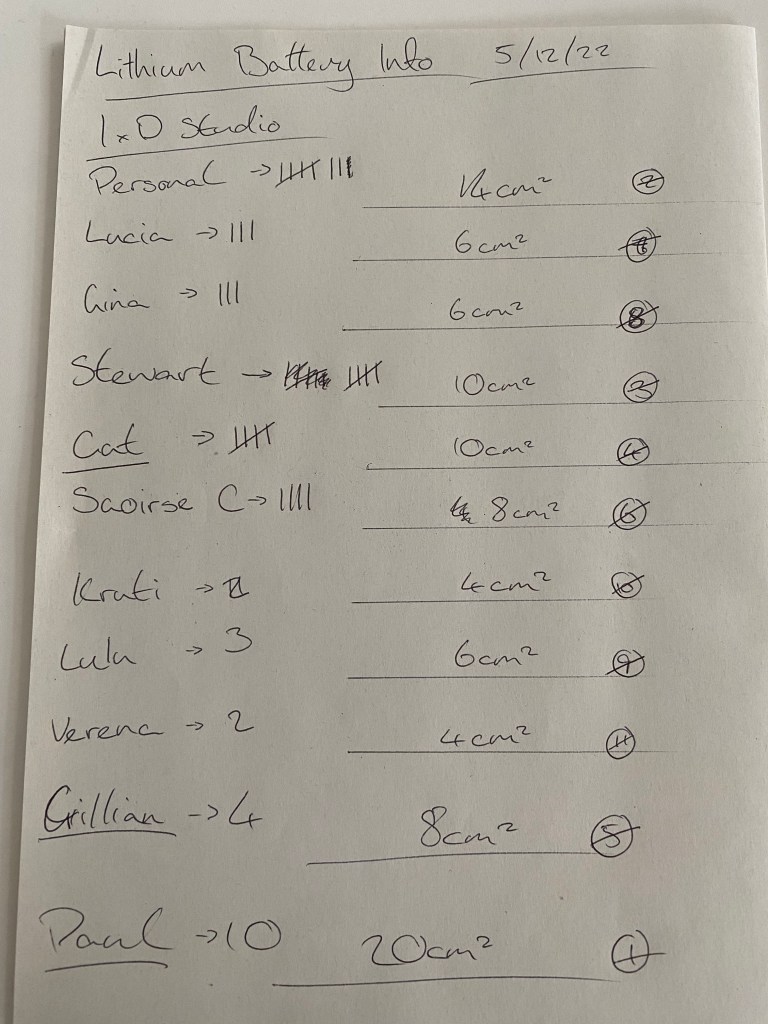 Lithium Battery Info 5/12/22
IxD Studio
Personal → 𝍸 III 14cm² 2
Lucia → III 6cm²
Gina → III 6cm² 8
Stewart → 𝍸 10cm² 3
Cat → 𝍸 10cm² 4
Saoirse C → IIII 8cm² 6
Krati → 4cm² 10
Lulu → 3 6cm² 9
Verena → 2 4cm² 11
Gillian → 4 8cm² 5
Paul → 10 20cm² 1